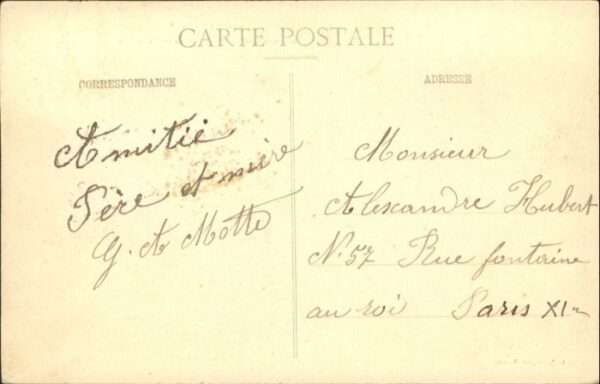 CARTE POSTALE
CORRESPONDANCE
Amitié
Père et mère
G. A Motte
ADRESSE
Monsieur
Alexandre Hubert
N. 57 Rue fontaine
au roi Paris XIe